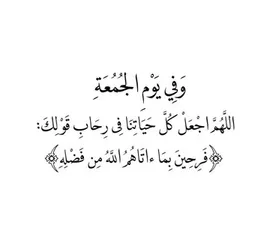 وَفِي يَوْمِ الْجُمُعَةِ
اللَّهُمَّ اجْعَلْ كُلَّ حَيَاتِنَا فِى رِحَابِ قَوْلِكَ:
﴿فَرِحِينَ بِمَا ءَاتَاهُمُ اللَّهُ مِن فَضْلِهِ﴾